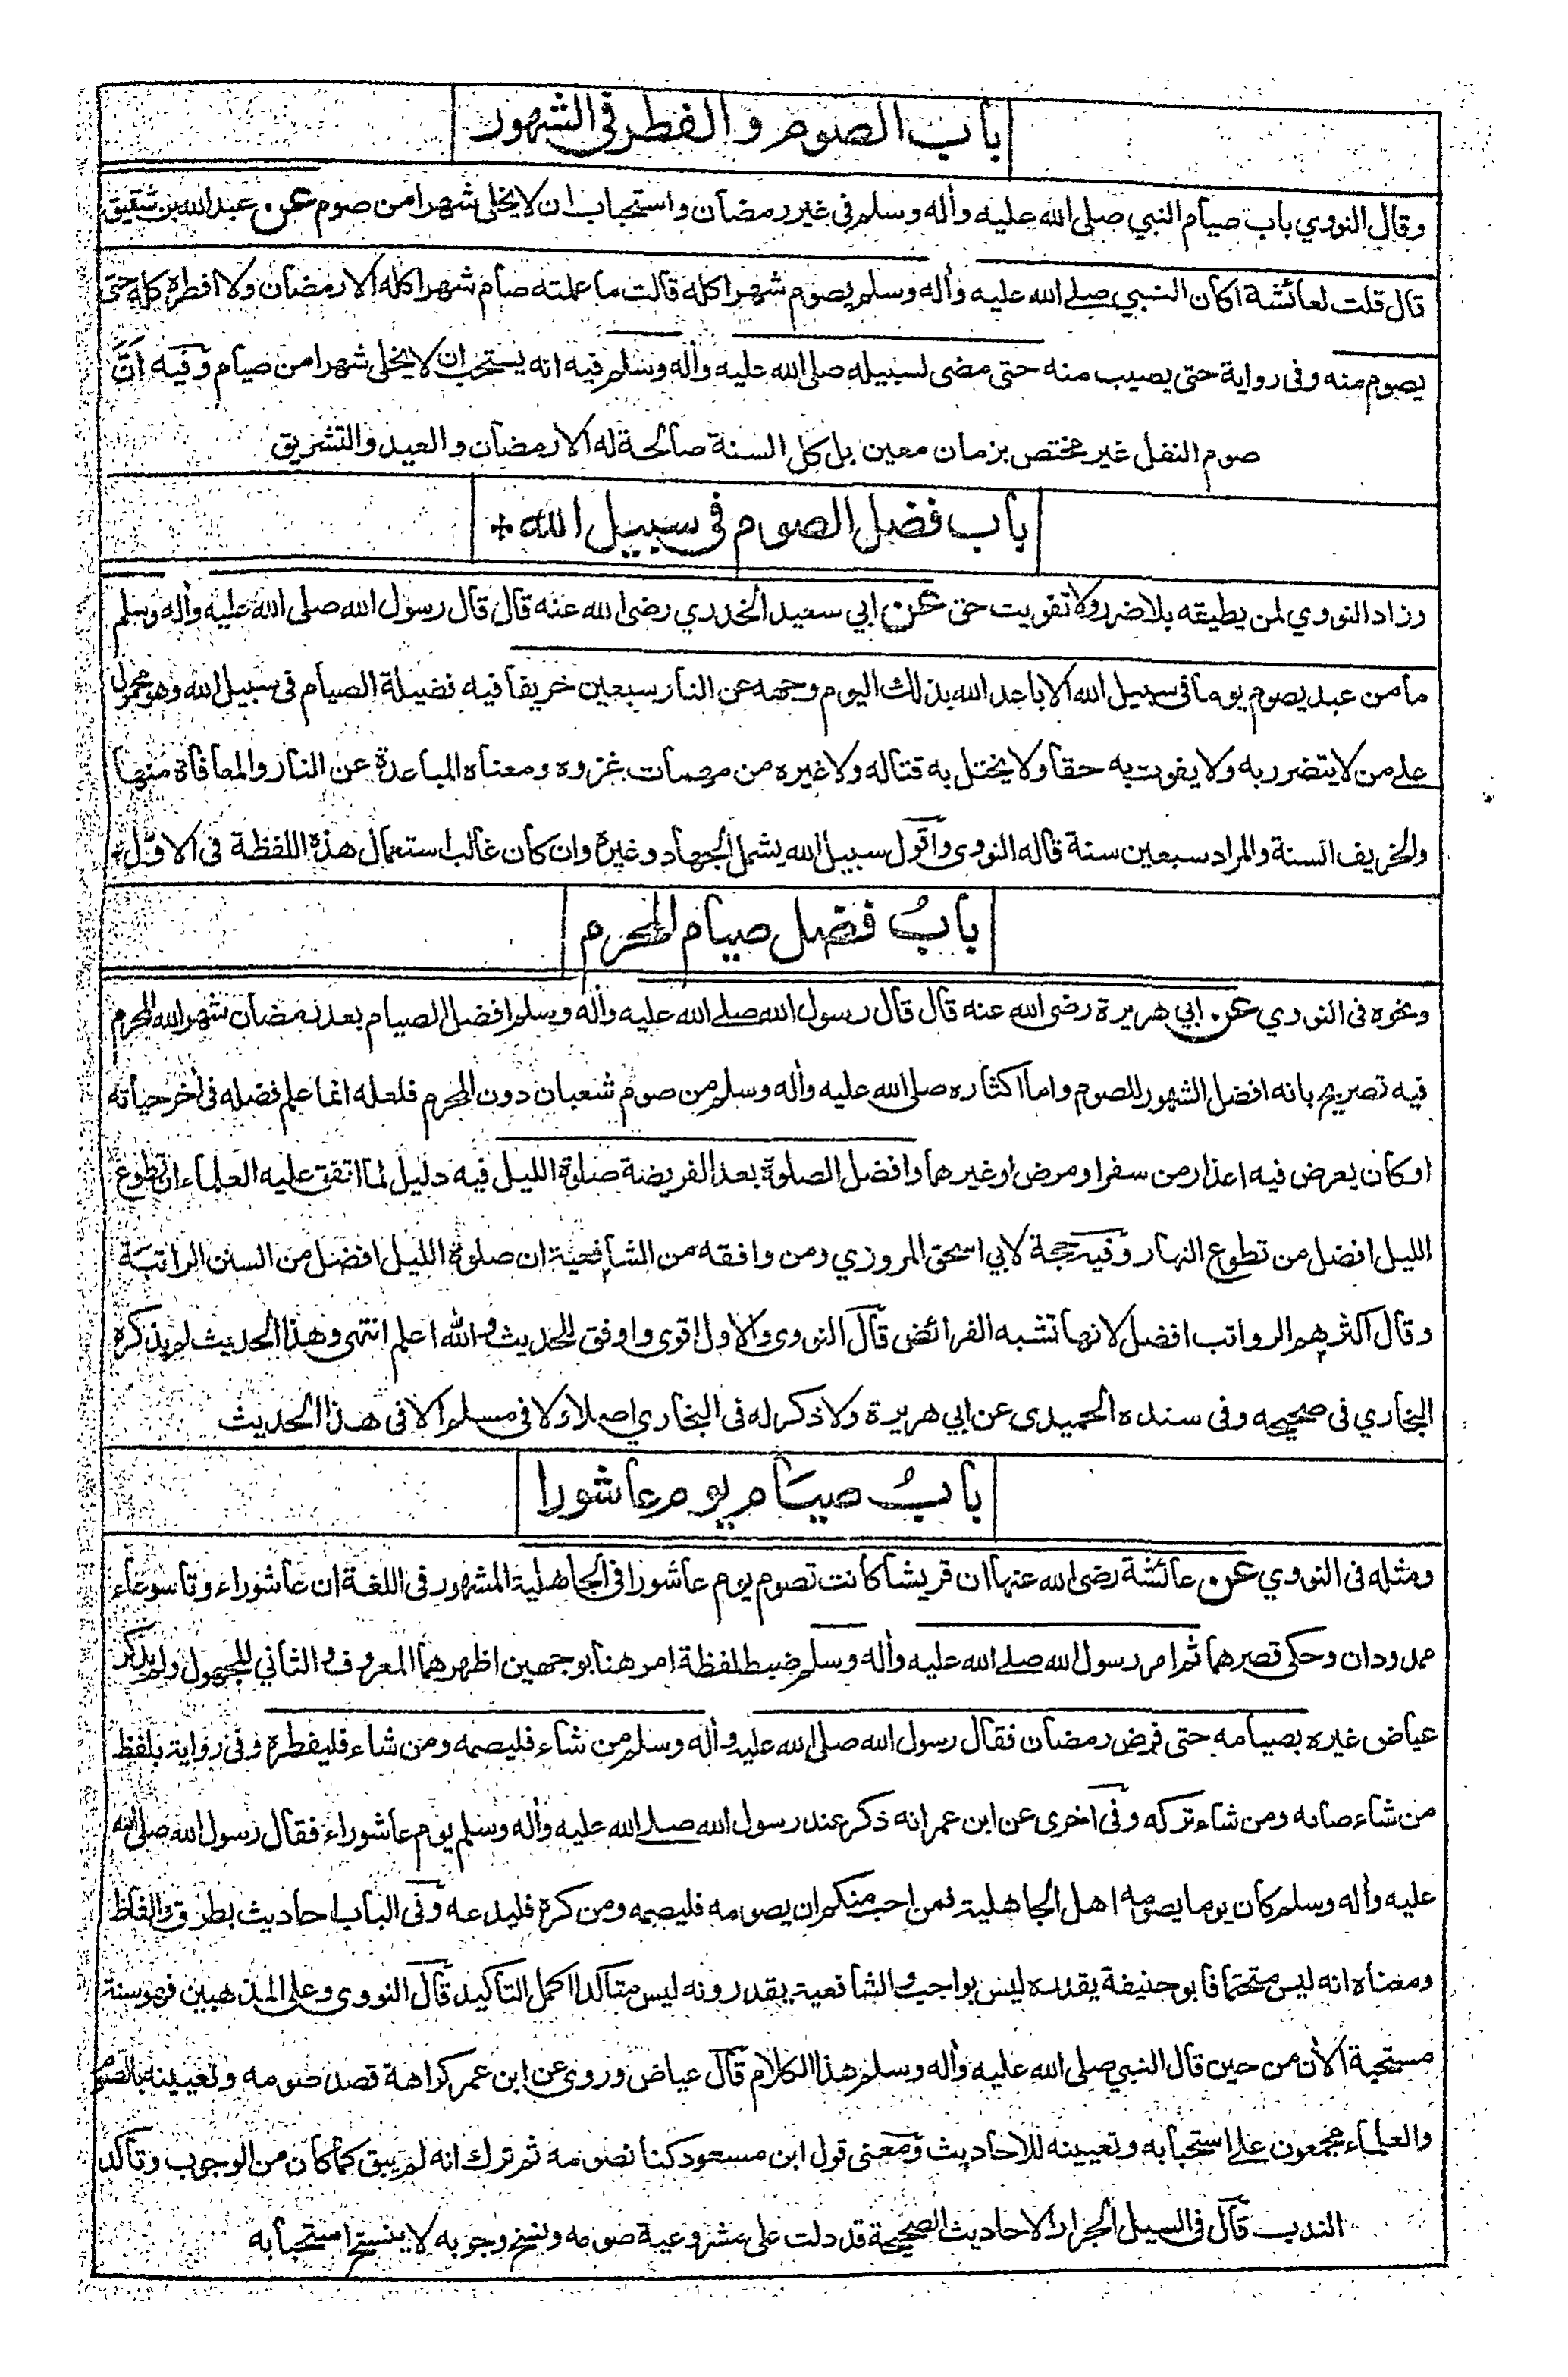 باب الصوم والفطر في الشهور
وقال النووي باب صيام النبي صلى الله عليه وأله وسلم في غير رمضان واستحباب ان لا يخلي شهرا من صوم عن عبد الله بن شقيق
قال قلت لعائشة اكان النبي صلى الله عليه وأله وسلم يصوم شهرا كله قالت ما علمته صام شهرا كله الا رمضان ولا افطره كله حتى
يصوم منه وفي رواية حتى يصيب منه حتى مضى لسبيله صلى الله عليه وأله وسلم فيه انه يستحب ان لا يخلي شهرا من صيام وفيه انَّ
صوم النفل غير مختص بزمان معين بل كل السنة صالحة له الا رمضان والعيد والتشريق
باب فضل الصوم في سبيل الله +
وزاد النووي لمن يطيقه بلا ضرر ولا تفويت حق عن ابي سعيد الخدري رضى الله عنه قال قال رسول الله صلى الله عليه وأله وسلم
ما من عبد يصوم يوما في سبيل الله الا باعد الله بذلك اليوم وجهه عن النار سبعين خريفا فيه فضيلة الصيام في سبيل الله وهو محمول
على من لا يتضرر به ولا يفوت به حقا ولا يختل به قتاله ولا غيره من مهمات غزوه ومعناه المباعدة عن النار والمعافاة منها
والخريف السنة والمراد سبعين سنة قاله النووى واقول سبيل الله يشمل الجهاد وغيره وان كان غالب استعمال هذه اللفظة في الاوّل +
بابُ فضل صيام المحرم
ونحوه في النووي عن ابي هريرة رضى الله عنه قال قال رسول الله صلى الله عليه وأله وسلم افضل الصيام بعد رمضان شهر الله المحرم
فيه تصريح بانه افضل الشهور للصوم واما اكثاره صلى الله عليه وأله وسلم من صوم شعبان دون المحرم فلعله انما علم فضله في أخر حياته
او كان يعرض فيه اعذار من سفر او مرض او غيرهما وافضل الصلوة بعد الفريضة صلوة الليل فيه دليل لما اتفق عليه العلماء ان تطوع
الليل افضل من تطوع النهار وفيه حجة لابي اسحق المروزي ومن وافقه من الشافعية ان صلوة الليل افضل من السنن الراتبة
وقال اكثرهم الرواتب افضل لانها تشبه الفرائض قال النووى والاول اقوى واوفق للحديث والله اعلم انتهى وهذا الحديث لم يذكره
البخاري في صحيحه وفي سنده الحميدى عن ابي هريرة ولا ذكر له في البخاري اصلا ولا في مسلم الا في هذا الحديث
بابُ صيَام يوم عاشورا
ومثله في النووي عن عائشة رضى الله عنها ان قريشا كانت تصوم يوم عاشورا في الجاهلية المشهور في اللغة ان عاشوراء وتاسوعاء
ممدودان وحكي قصرهما ثم امر رسول الله صلى الله عليه وأله وسلم ضبط لفظة امر هنا بوجهين اظهرهما المعروف والثاني للمجهول ولم يذكر
عياض غيره بصيامه حتى فرض رمضان فقال رسول الله صلى الله عليه وأله وسلم من شاء فليصمه ومن شاء فليفطره وفي رواية بلفظ
من شاء صامه ومن شاء تركه وفي اخرى عن ابن عمر انه ذكر عند رسول الله صلى الله عليه وأله وسلم يوم عاشوراء فقال رسول الله صلى الله
عليه وأله وسلم كان يوما يصومه اهل الجاهلية فمن احب منكم ان يصومه فليصمه ومن كره فليدعه وفي الباب احاديث بطرق والفاظ
ومعناه انه ليس متحتما فابو حنيفة يقدره ليس بواجب والشافعية يقدرونه ليس متاكدا اكمل التأكيد قال النووى وعلى المذهبين فهو سنة
مستحبة الأن من حين قال النبي صلى الله عليه وأله وسلم هذا الكلام قال عياض وروى عن ابن عمر كراهة قصد صومه وتعيينه بالصوم
والعلماء مجمعون على استحبابه وتعيينه للاحاديث ومعنى قول ابن مسعود كنا نصومه ثم ترك انه لم يبق كما كان من الوجوب وتأكد
الندب قال في السيل الجرار الاحاديث الصحيحة قد دلت على مشروعية صومه ونسخ وجوبه لا ينسخ استحبابه